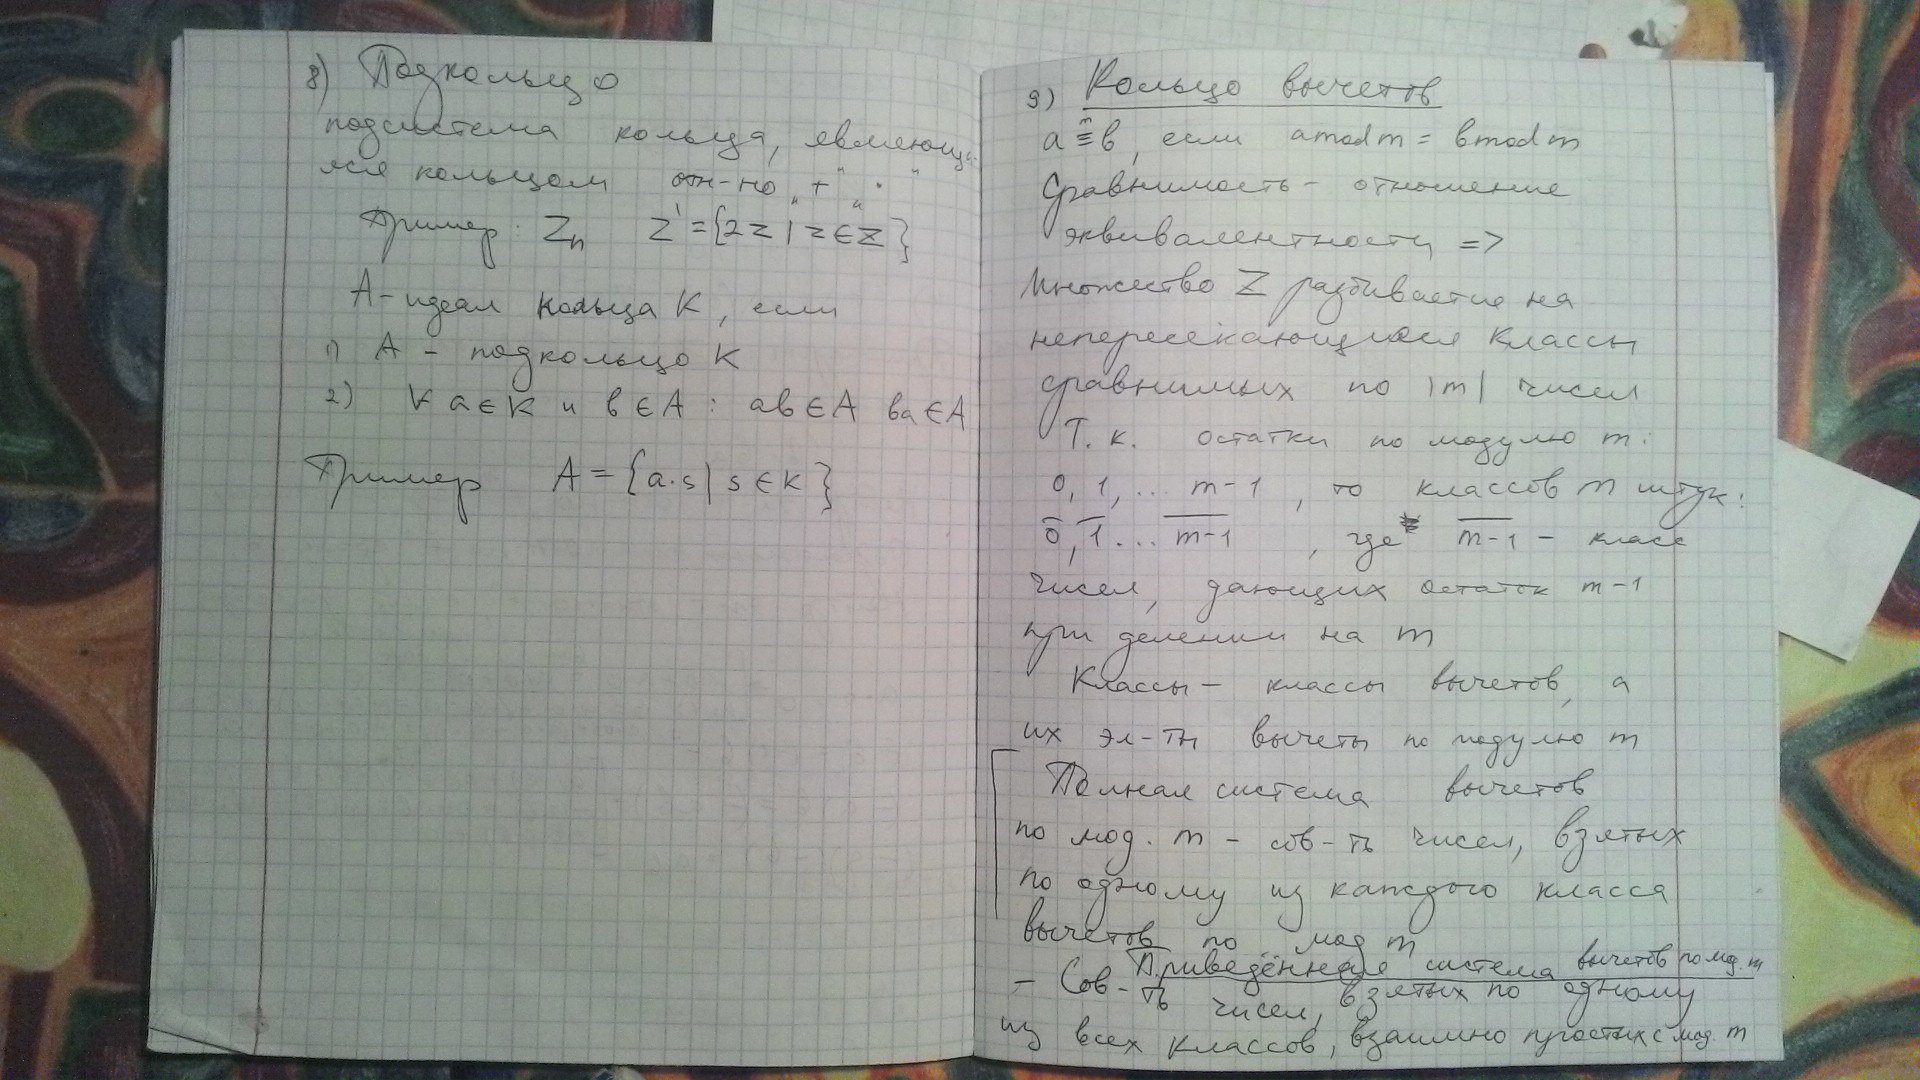 8) Подкольцо
подсистема кольца, являюща-
яся кольцом отн-но "+" "·"
Пример: Zn Z' = {2z | z ∈ Z}
A - идеал кольца K, если
1) A - подкольцо K
2) ∀ a ∈ K и b ∈ A : ab ∈ A ba ∈ A
Пример A = {a·s | s ∈ K}
9) Кольцо вычетов
a ≡ᵐ b, если a mod m = b mod m
Сравнимость - отношение
эквивалентности =>
Множество Z разбивается на
непересекающиеся классы
сравнимых по |m| чисел
Т.к. остатки по модулю m:
0, 1, ... m-1, то классов m штук:
0̅, 1̅ ... m̅-̅1̅, где m̅-̅1̅ - класс
чисел, дающих остаток m-1
при делении на m
Классы - классы вычетов, а
их эл-ты вычеты по модулю m
Полная система вычетов
по мод. m - сов-ть чисел, взятых
по одному из каждого класса
вычетов по мод m
Приведённая система вычетов по мод. m
- Сов-ть чисел, взятых по одному
из всех классов, взаимно простых с мод. m